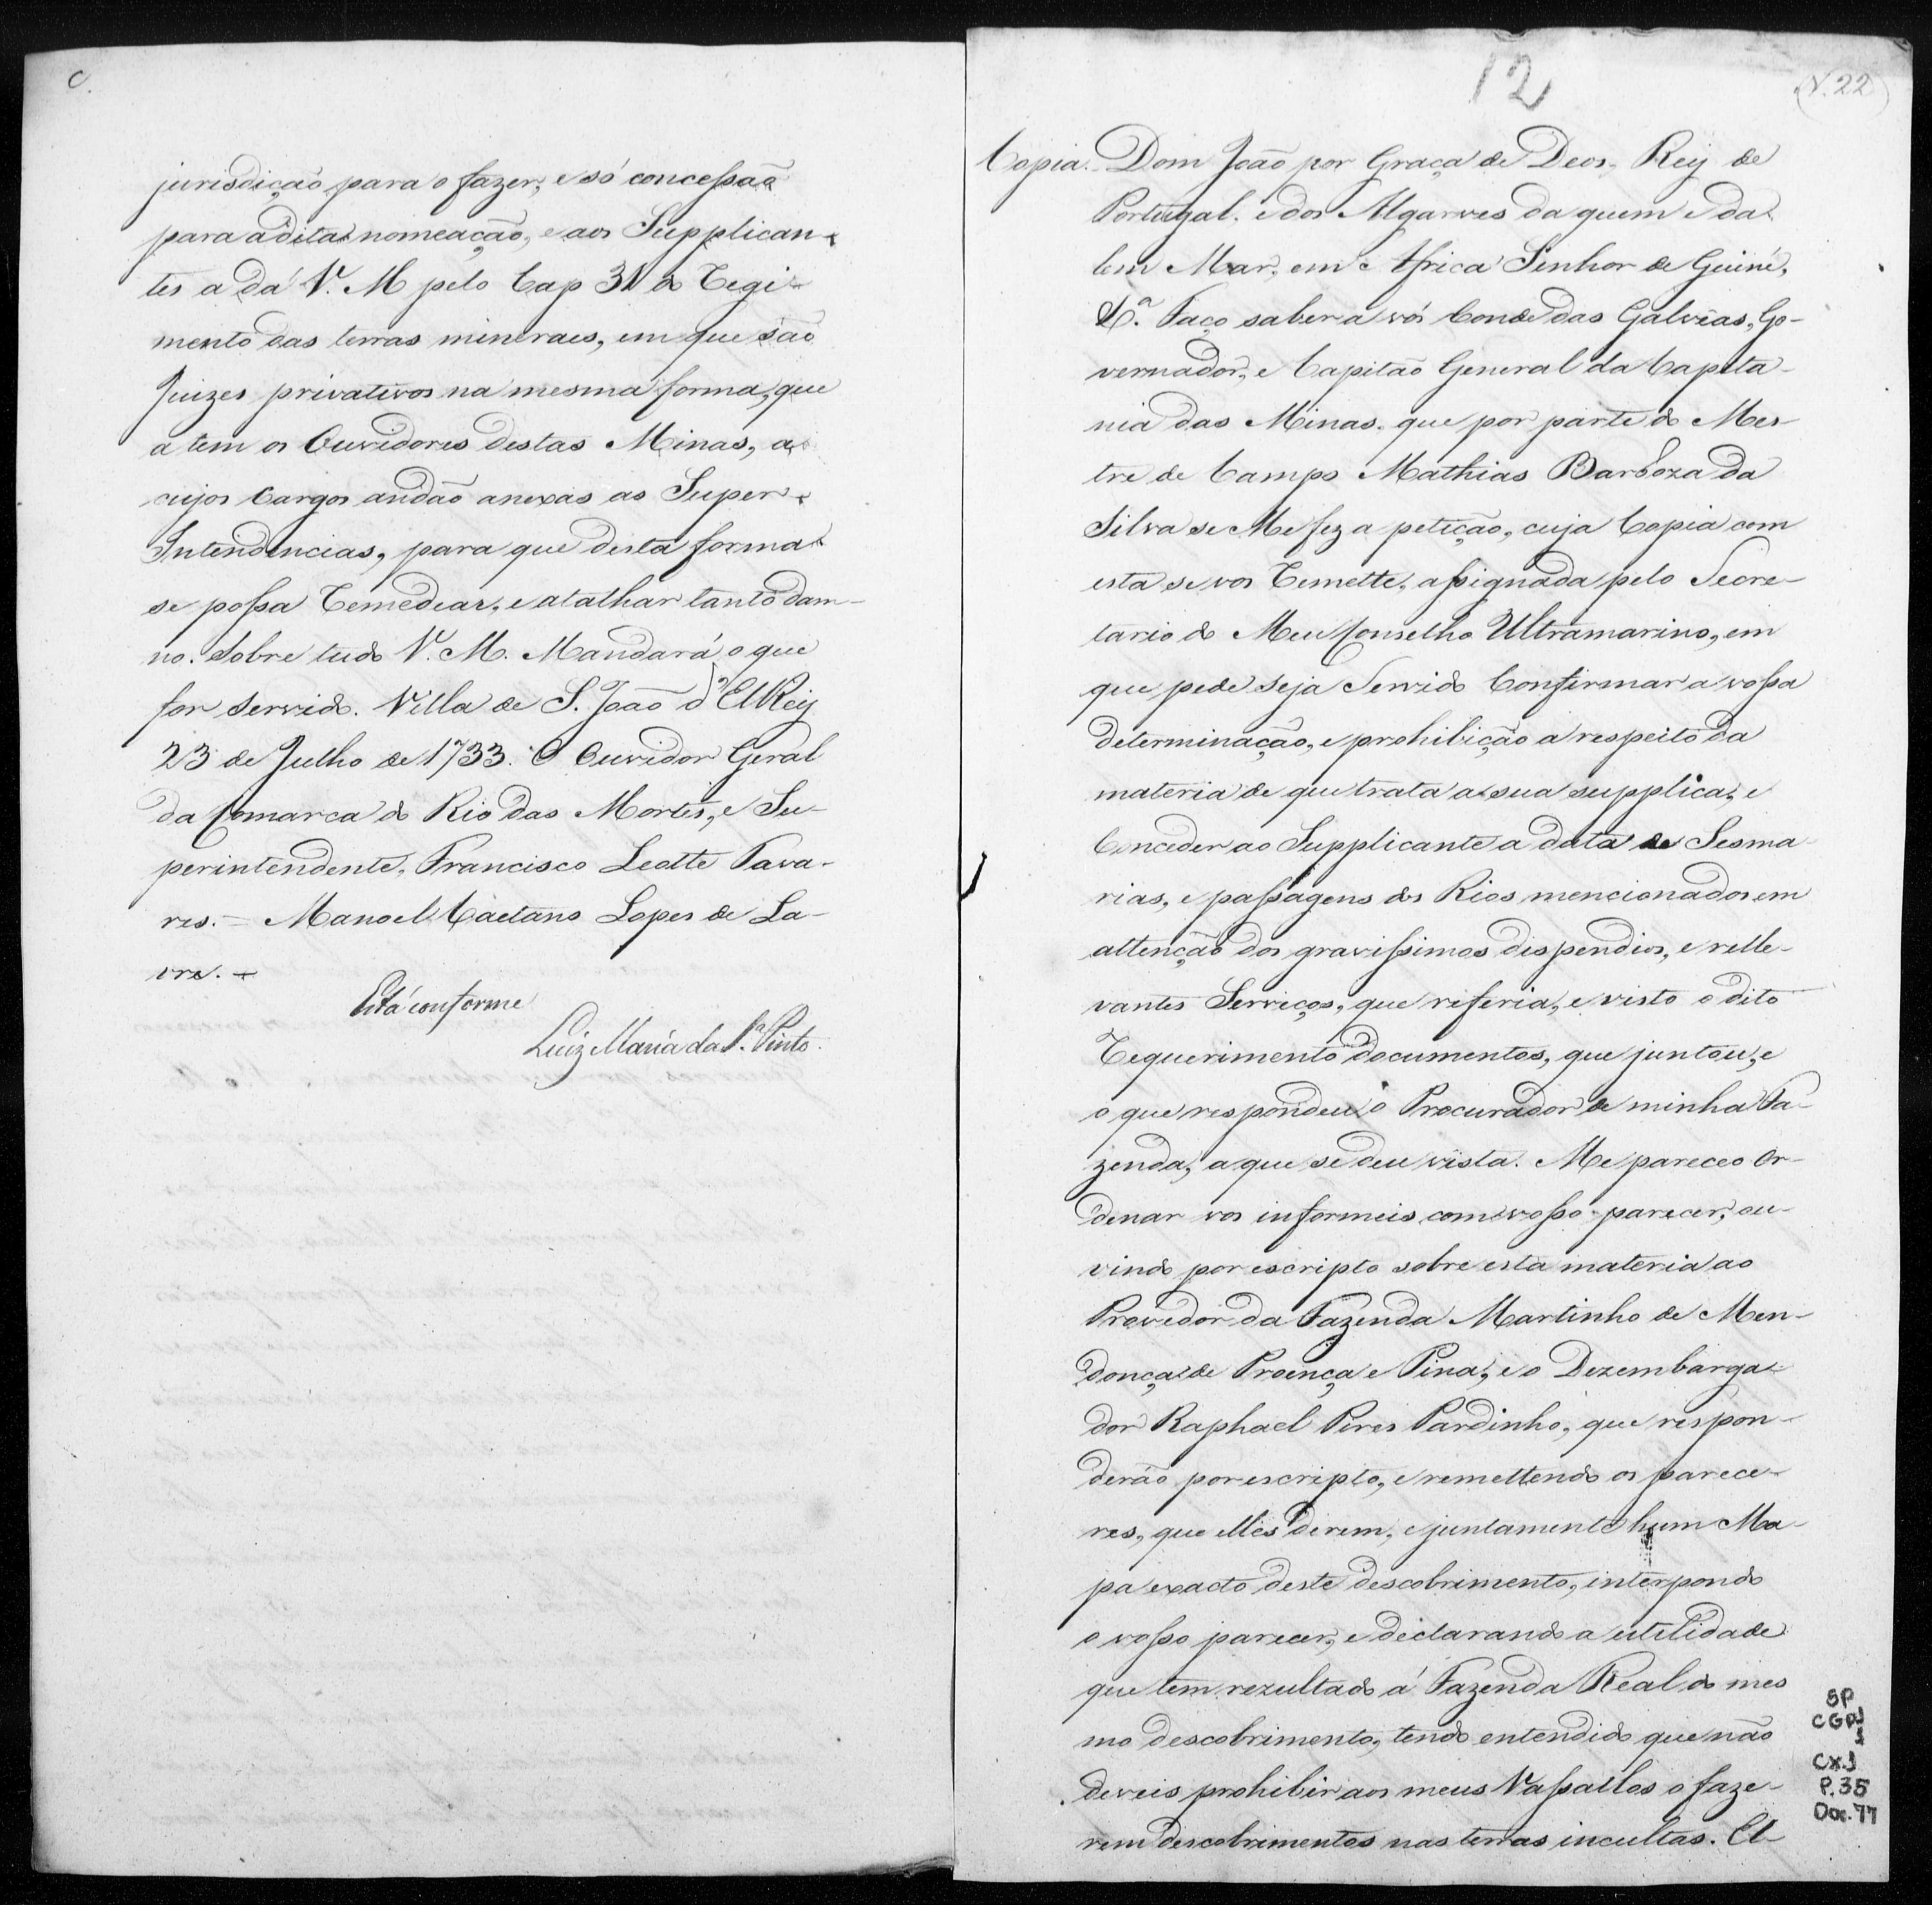 C.
jurisdição para o fazer, e só concessão
para a dita nomeação, e aos Supplican-
tes a dá V. M pelo Cap 31 do Regi-
mento das terras mineraes, em que são
Juizes privativos na mesma forma, que
a tem os Ouvidores destas Minas, a
cujos Cargos andão anexas as Super-
Intendencias, para que desta forma
se possa Remedear, e atalhar tanto dam-
no. Sobre tudo V. M. Mandará o que
for Servido. Villa de S. João d'ElRey
23 de Julho de 1733. O Ouvidor Geral
da Comarca do Rio das Mortes, e Su-
perintendente, Francisco Leotte Tava-
res. — Manoel Caetano Lopes de La-
vre. —
Está conforme
Luiz Maria da S.ª Pinto.
12
N. 22
Copia. Dom João por Graça de Deos, Rey de
Portugal. e dos Algarves da quem e da
lem Mar, em Africa Senhor de Guiné,
&.ª Faço saber a vós Conde das Galvêas, Go-
vernador, e Capitão General da Capita-
nia das Minas. que por parte do Mes-
tre de Campo Mathias Barboza da
Silva se Me fez a petição, cuja Copia com
esta se vos Remette, assignada pelo Secre-
tario do Meu Conselho Ultramarino, em
que pede seja Servido Confirmar a vossa
determinação, e prohibição a respeito da
materia de que trata a sua supplica, e
Conceder ao Supplicante a data de Sesma
rias, e passagens dos Rios mencionados em
attenção dos gravissimos dispendios, e relle-
vantes Serviços, que referia, e visto o dito
Requerimento documentos, que juntou, e
o que respondeu o Procurador de minha Fa-
zenda, a que se deu vista. Me pareceo Or-
denar vos informeis com vosso parecer, ou-
vindo por escripto sobre esta materia ao
Provedor da Fazenda Martinho de Men-
donça de Proença e Pina, e o Dezembarga-
dor Raphael Pires Pardinho, que respon-
derão por escripto, e remettendo os parece-
res, que elles derem, e juntamente hum Ma-
pa exacto deste descobrimento, interpondo
o vosso parecer, e declarando a utilidade
que tem rezultado á Fazenda Real do mes
mo descobrimento, tendo entendido que não
deveis prohibir aos meus Vassallos o faze-
rem descobrimentos nas terras incultas. El-
SP
CX.1
P.35
Doc. 77